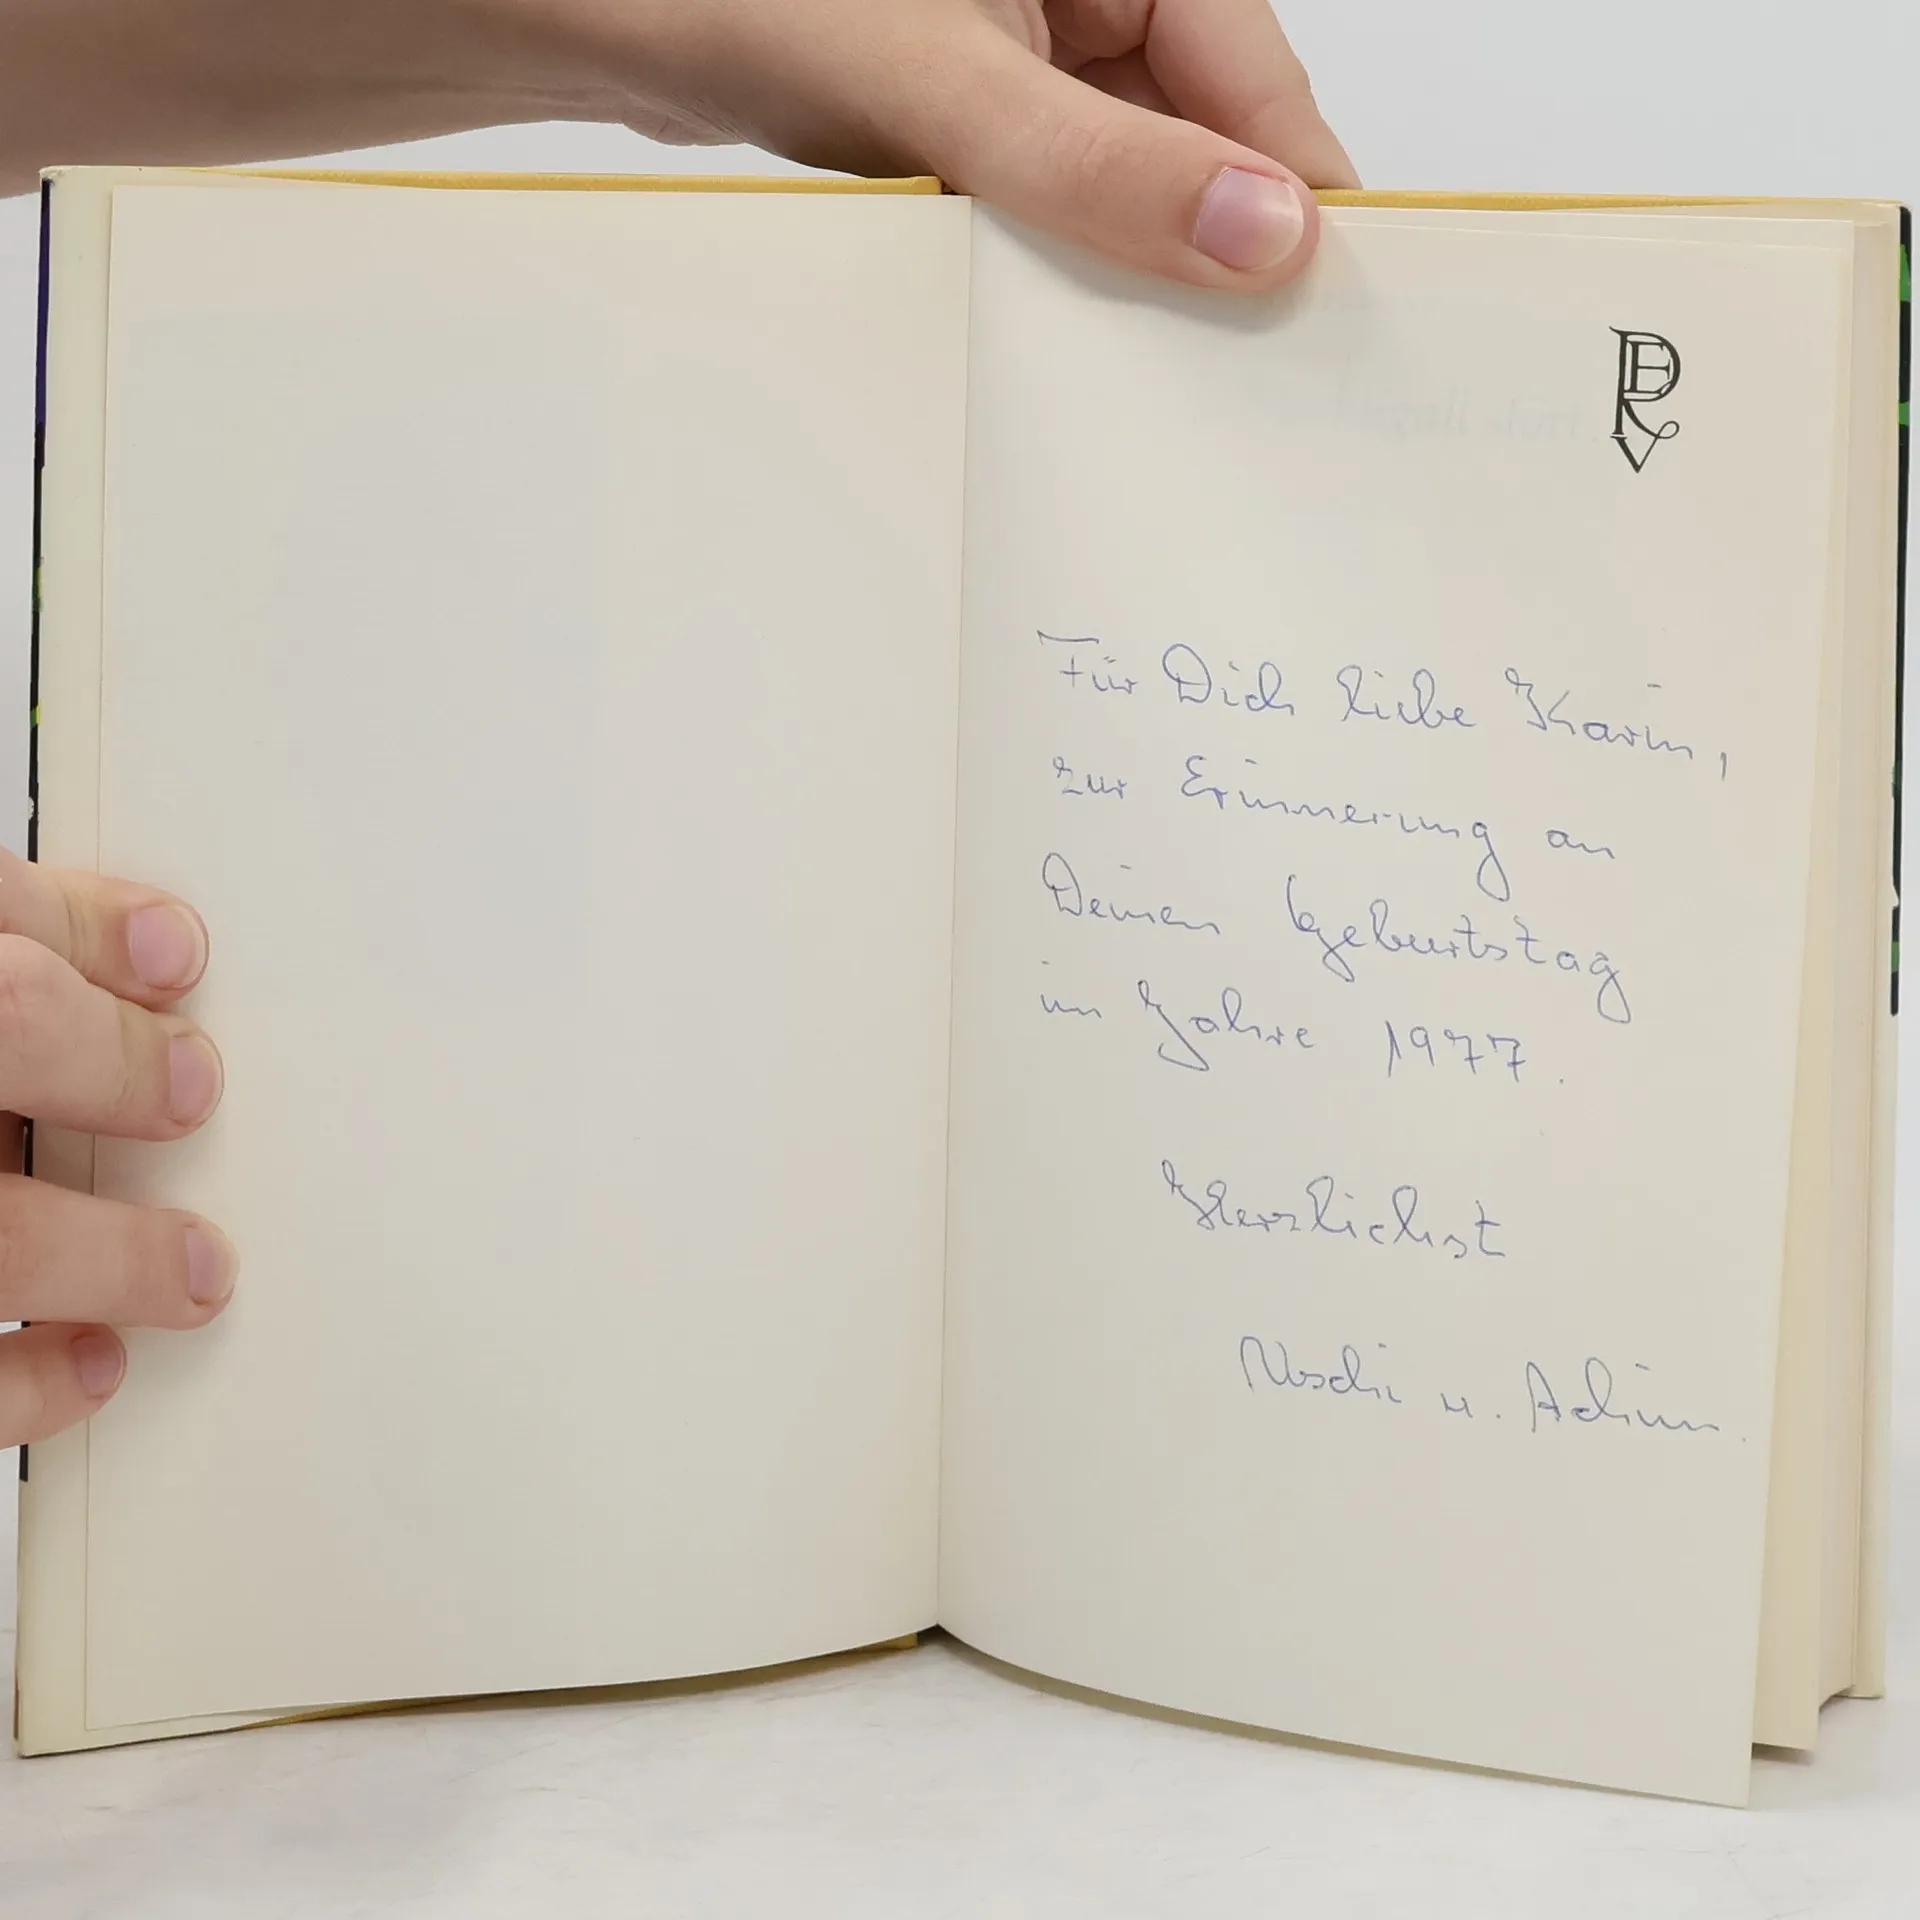 PEV
Für Dich liebe Karin,
zur Erinnerung an
Deinen Geburtstag
im Jahre 1977.
Herzlichst
Uschi u. Achim.